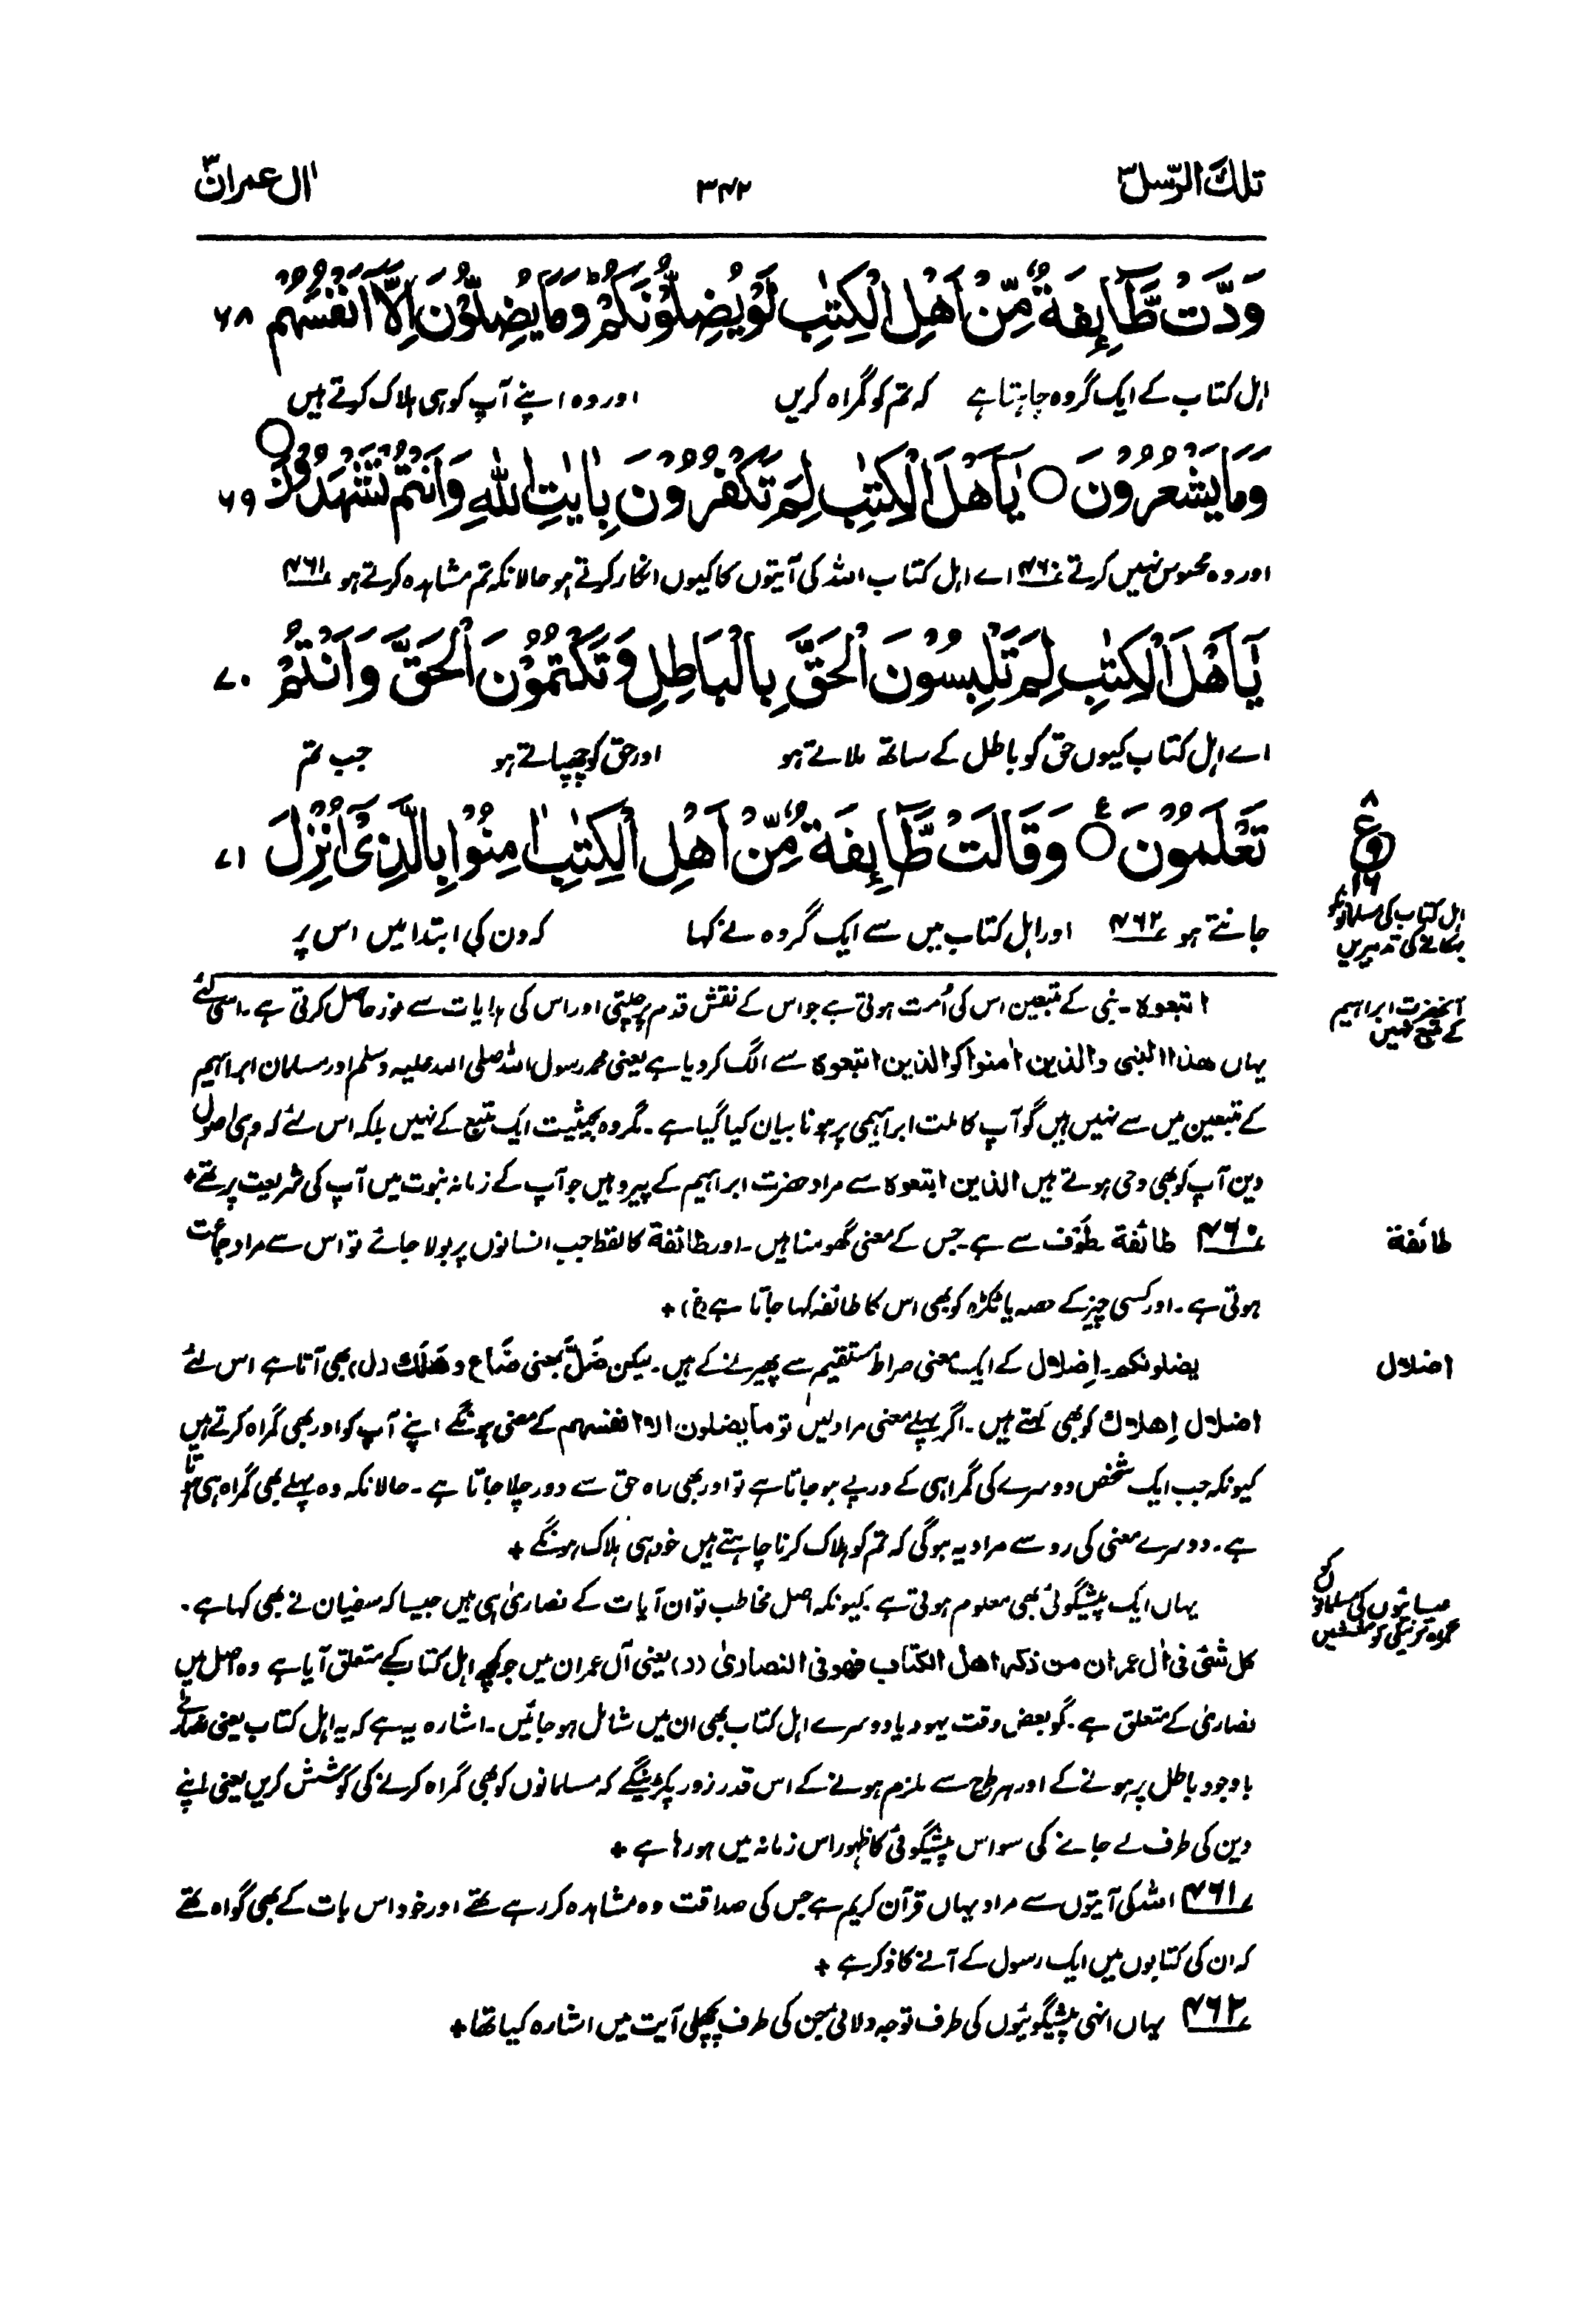 تلك الرّسل ۳
۳۴۲
اٰل عمران ۳
وَدَّتْ طَّآئِفَةٌ مِّنْ اَهْلِ الْكِتٰبِ لَوْ يُضِلُّوْنَكُمْ ؕ وَمَا يُضِلُّوْنَ اِلَّآ اَنْفُسَهُمْ ۶۸
اہل کتاب کے ایک گروہ چاہتا ہے کہ تم کو گمراہ کریں اور وہ اپنے آپ کو ہی ہلاک کرتے ہیں
وَمَا يَشْعُرُوْنَ ○ يٰٓاَهْلَ الْكِتٰبِ لِمَ تَكْفُرُوْنَ بِاٰيٰتِ اللّٰهِ وَاَنْتُمْ تَشْهَدُوْنَ ○ ۶۹
اور وہ محسوس نہیں کرتے ۴۶۰ اے اہل کتاب اللہ کی آیتوں کا کیوں انکار کرتے ہو حالانکہ تم مشاہدہ کرتے ہو ۴۶۱
يٰٓاَهْلَ الْكِتٰبِ لِمَ تَلْبِسُوْنَ الْحَقَّ بِالْبَاطِلِ وَتَكْتُمُوْنَ الْحَقَّ وَاَنْتُمْ ۷۰
اے اہل کتاب کیوں حق کو باطل کے ساتھ ملاتے ہو اور حق کو چھپاتے ہو جب تم
تَعْلَمُوْنَ ○ ع وَقَالَتْ طَّآئِفَةٌ مِّنْ اَهْلِ الْكِتٰبِ اٰمِنُوْا بِالَّذِیْۤ اُنْزِلَ ۷۱
۸
ع
۱۶
جانتے ہو ۴۶۲ اور اہل کتاب میں سے ایک گروہ نے کہا کہ دن کی ابتدا میں اس پر
اہل کتاب کی مسلمانوں کو
بہکانے کی تدبیریں
اتبعوه ۔ نبی کے متبعین اس کی اُمت ہوتی ہے جو اس کے نقش قدم پر چلتی اور اس کی ہدایات سے نور حاصل کرتی ہے ۔ اسی لئے
آنحضرت ابراہیم
کے متبع نہیں
یہاں هذا النبی والذین اٰمنوا کو الذین اتبعوه سے الگ کر دیا ہے یعنی محمد رسول اللہ صلی اللہ علیہ وسلم اور مسلمان ابراہیم
کے متبعین میں سے نہیں ہیں گو آپ کا ملت ابراہیمی پر ہونا بیان کیا گیا ہے ۔ مگر وہ بحیثیت ایک متبع کے نہیں بلکہ اس لئے کہ وہی اصول
دین آپ کو بھی وحی ہوتے ہیں الذین اتبعوه سے مراد حضرت ابراہیم کے پیرو ہیں جو آپ کے زمانہ نبوت میں آپ کی شریعت پر تھے +
طائفة
۴۶۰ طائفة طَوَف سے ہے ۔ جس کے معنی گھومنا ہیں ۔ اور طائفة کا لفظ جب انسانوں پر بولا جائے تو اس سے مراد جماعت
ہوتی ہے ۔ اور کسی چیز کے حصہ یا ٹکڑہ کو بھی اس کا طائفہ کہا جاتا ہے (غ) +
اضلال
یضلونکم ۔ اِضلال کے ایک معنی صراط مستقیم سے پھیرنے کے ہیں ۔ لیکن ضَلَّ بمعنی ضَاع و هَلَكَ (ل) بھی آتا ہے اس لئے
اضلال اِهلاك کو بھی کہتے ہیں ۔ اگر پہلے معنی مراد لیں تو ما یضلون الا انفسهم کے معنی ہونگے اپنے آپ کو اور بھی گمراہ کرتے ہیں
کیونکہ جب ایک شخص دوسرے کی گمراہی کے درپے ہو جاتا ہے تو اور بھی راہ حق سے دور چلا جاتا ہے ۔ حالانکہ وہ پہلے بھی گمراہ ہی ہوتا
ہے ۔ دوسرے معنی کی رو سے مراد یہ ہوگی کہ تم کو ہلاک کرنا چاہتے ہیں خود ہی ہلاک ہونگے +
یہاں ایک پیشگوئی بھی معلوم ہوتی ہے کیونکہ اصل مخاطب تو ان آیات کے نصاریٰ ہی ہیں جیسا کہ سفیان نے بھی کہا ہے ۔
عیسائیوں کی مسلمانوں کو
گمراہ کرنیکی کوششیں
کل شئ فی اٰل عمران من ذکر اهل الکتاب فهو فی النصاریٰ (د) یعنی آل عمران میں جو کچھ اہل کتاب کے متعلق آیا ہے وہ اصل میں
نصاریٰ کے متعلق ہے ۔ گو بعض وقت یہود یا دوسرے اہل کتاب بھی ان میں شامل ہو جائیں ۔ اشارہ یہ ہے کہ یہ اہل کتاب یعنی نصاریٰ
باوجود باطل پر ہونے کے اور ہر طرح سے ملزم ہونے کے اس قدر زور پکڑینگے کہ مسلمانوں کو بھی گمراہ کرنے کی کوشش کریں یعنی اپنے
دین کی طرف لے جانے کی سو اس پیشگوئی کا ظہور اس زمانہ میں ہو رہا ہے +
۴۶۱ اللہ کی آیتوں سے مراد یہاں قرآن کریم ہے جس کی صداقت وہ مشاہدہ کر رہے تھے اور خود اس بات کے بھی گواہ تھے
کہ ان کی کتابوں میں ایک رسول کے آنے کا ذکر ہے +
۴۶۲ یہاں انہی پیشگوئیوں کی طرف توجہ دلائی جن کی طرف پچھلی آیت میں اشارہ کیا تھا +